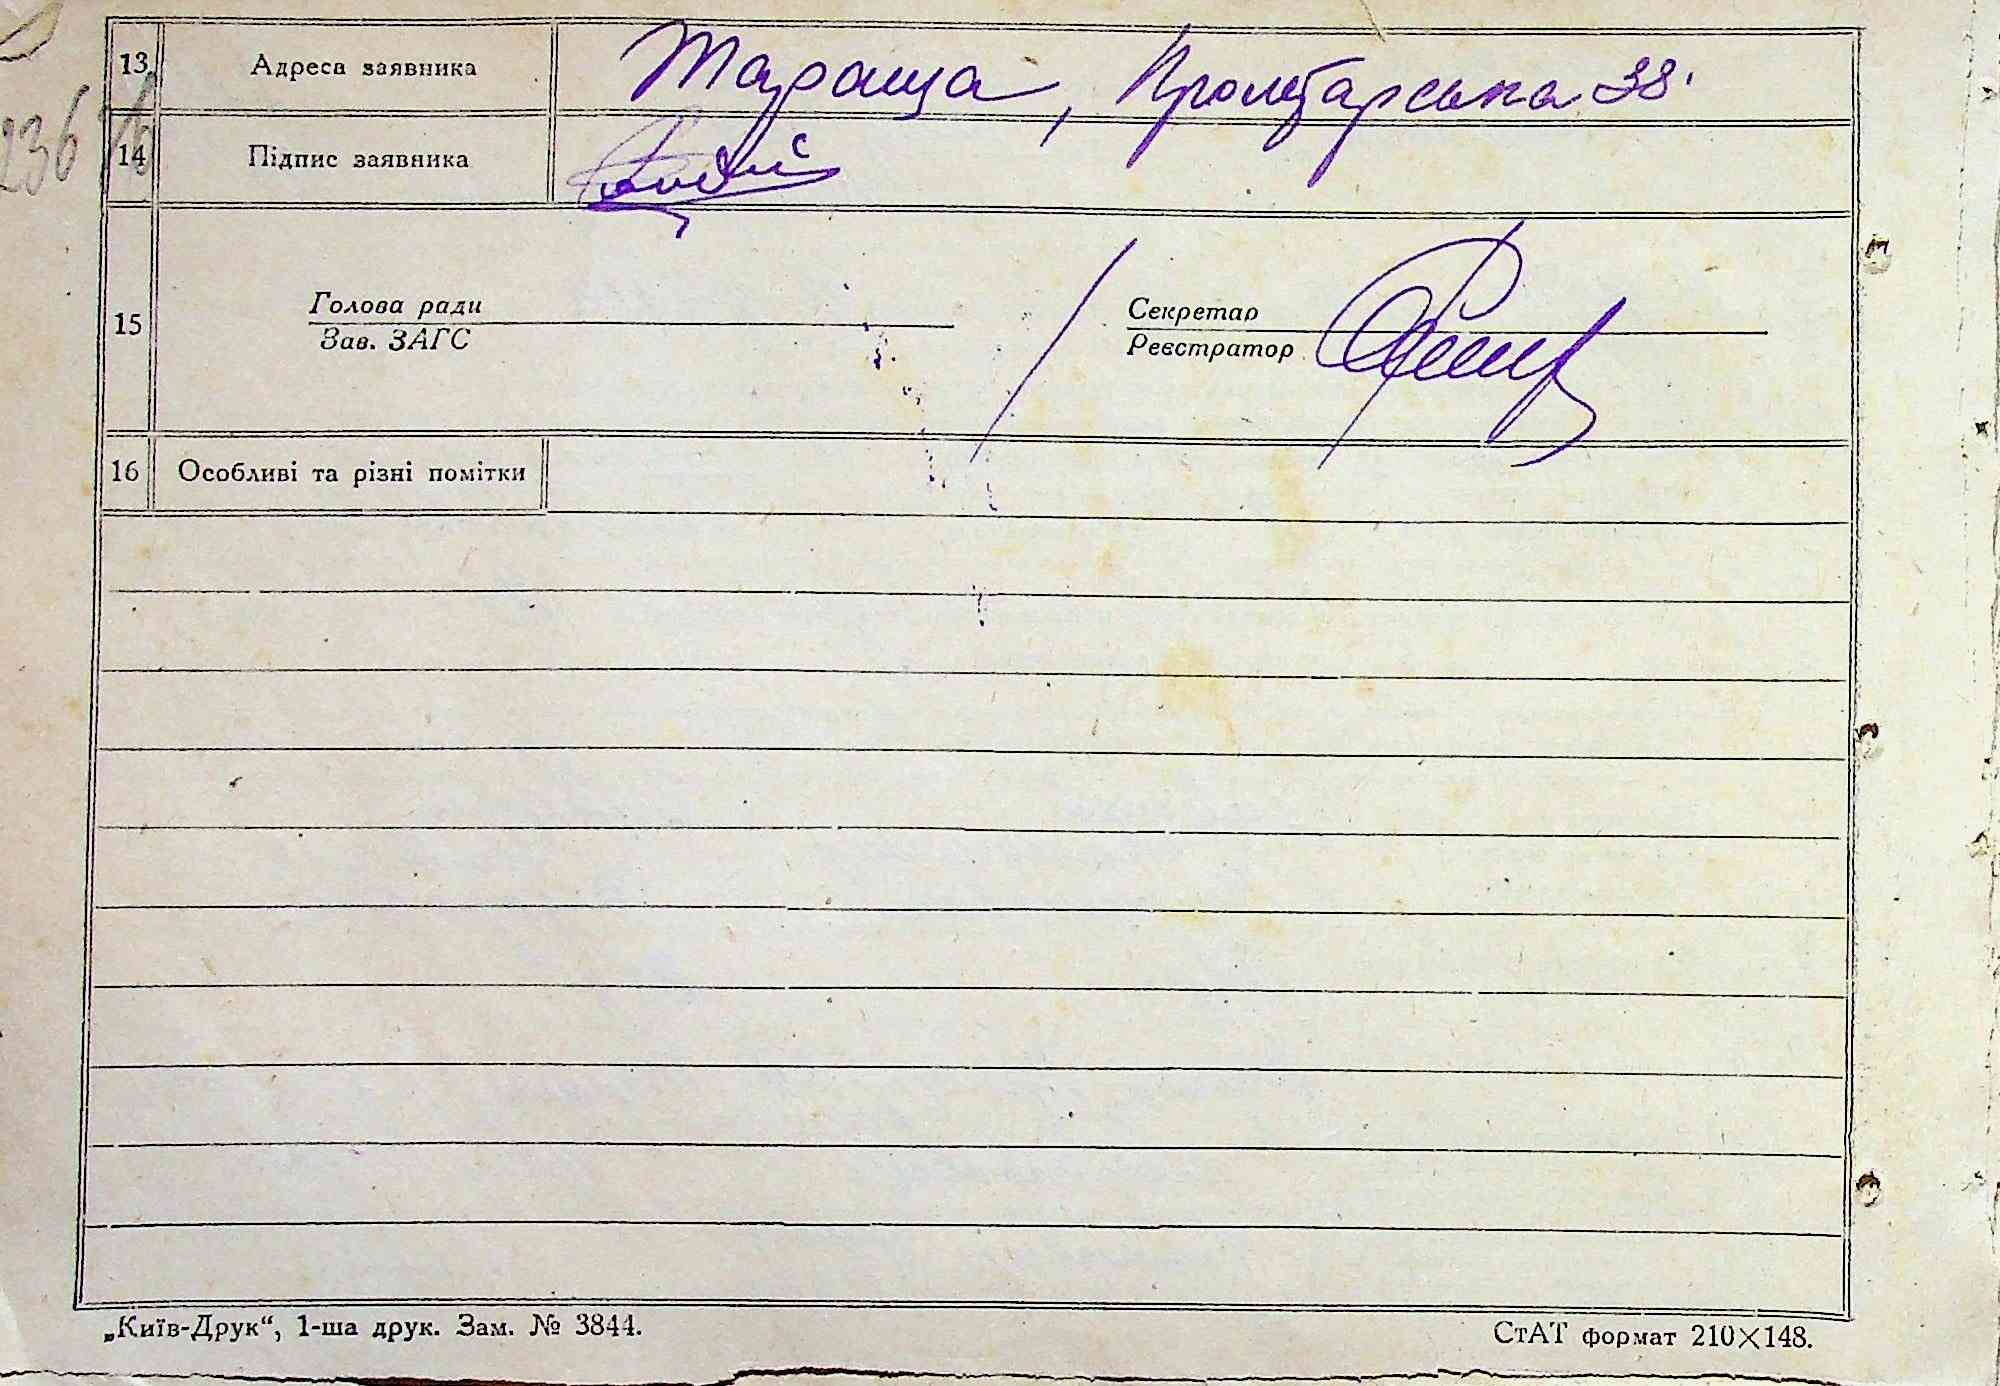 13 Адреса заявника Тараща, Пролетарська 38.
236
14 Підпис заявника
15 Голова ради Секретар
Зав. ЗАГС Реєстратор
16 Особливі та різні помітки
„Київ-Друк“, 1-ша друк. Зам. № 3844. СтАТ формат 210×148.